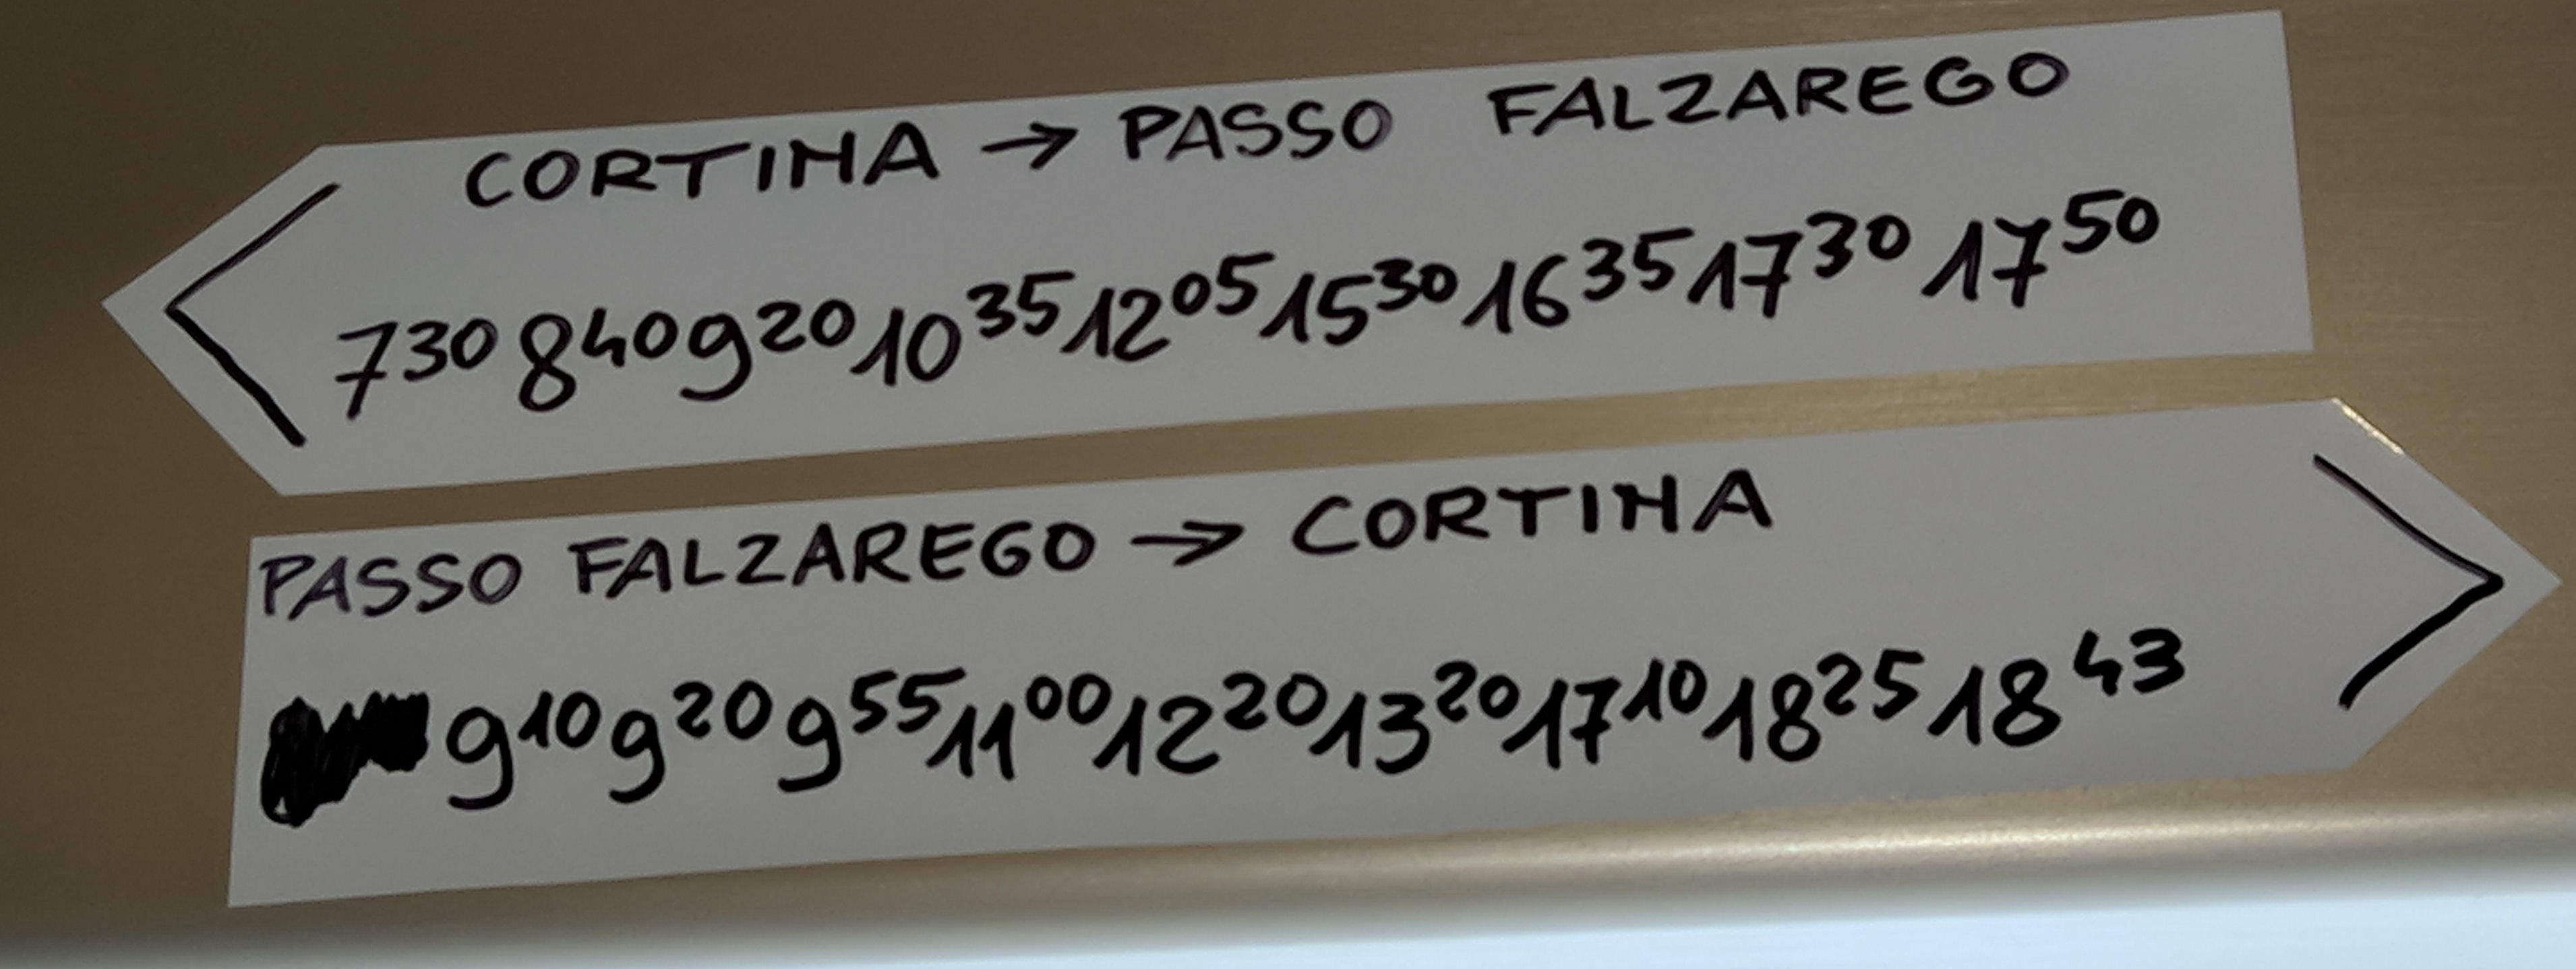 CORTINA → PASSO FALZAREGO
7³⁰ 8⁴⁰ 9²⁰ 10³⁵ 12⁰⁵ 15³⁰ 16³⁵ 17³⁰ 17⁵⁰
PASSO FALZAREGO → CORTINA
9¹⁰ 9²⁰ 9⁵⁵ 11⁰⁰ 12²⁰ 13²⁰ 17¹⁰ 18²⁵ 18⁴³